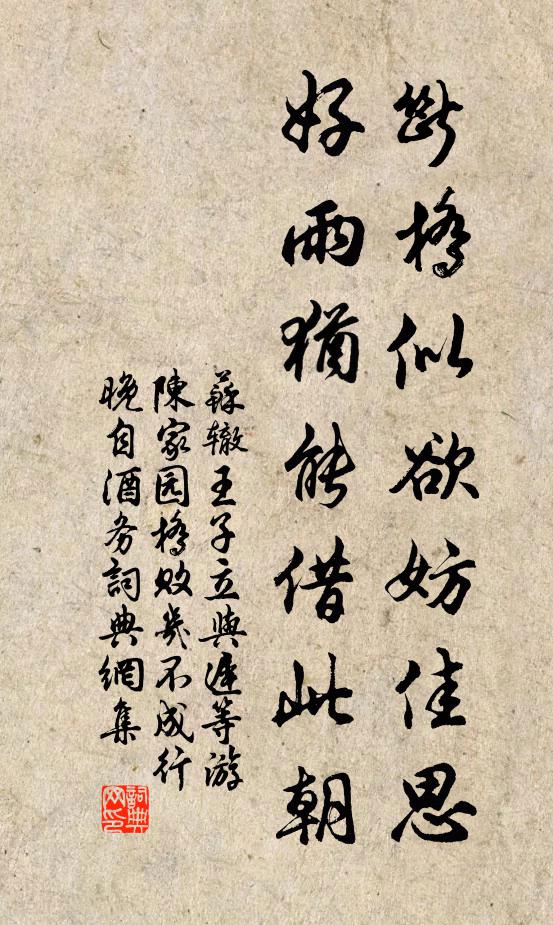 斷橋似欲妨佳思
好雨猶能借此朝
蘇辙王子立與遲等游
陳家园橋敗幾不成行
晚自酒务詞典網集
詞典网印